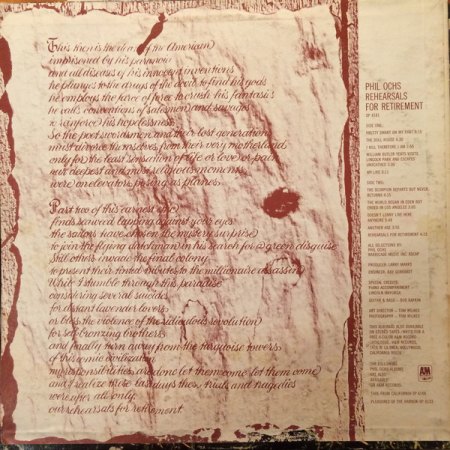 This then is the death of the American
imprisoned by his paranoia
and all diseases of his innocent inventions
he plunges to the drugs of the devil to find his gods
he employs the force of force to crush his fantasies
he calls conventions of salesmen and savages
to reinforce his hopelessness
So the poet swordsmen and their lost generations
must divorce themselves from their very motherland
only for the least sensation of life or love or pain
our deepest and most religious moments
were on elevators posing as planes
Part two of this earnest epic
finds seaweed lapping against your eyes
the sailors have chosen the mystery surprise
to join the flying dutchman in his search for a green disguise
Still others invade the final colony
to present their tinted tributes to the millionaire assassin
While I stumble through this paradise
considering several suicides
for distant lavender lovers
or bless the violence of the ridiculous revolution
for self-bronzing brothers
and finally turn away from the turquoise towers
of this comic civilization
my responsibilities are done let them come let them come
and I realize these last days these trials and tragedies
were after all only
our rehearsals for retirement.
PHIL OCHS
REHEARSALS
FOR RETIREMENT
SP 4181
SIDE ONE:
PRETTY SMART ON MY PART
THE DOLL HOUSE
I KILL THEREFORE I AM
WILLIAM BUTLER YEATS VISITS
LINCOLN PARK AND ESCAPES
UNSCATHED
MY LIFE
SIDE TWO:
THE SCORPION DEPARTS BUT NEVER
RETURNS
THE WORLD BEGAN IN EDEN BUT
ENDED IN LOS ANGELES
DOESN'T LENNY LIVE HERE
ANYMORE
ANOTHER AGE
REHEARSALS FOR RETIREMENT
ALL SELECTIONS BY
PHIL OCHS
BARRICADE MUSIC INC. ASCAP
PRODUCER: LARRY MARKS
ENGINEER:
SPECIAL CREDITS
PIANO ACCOMPANIMENT -
LINCOLN MAYORGA
GUITAR & BASS - BOB RAFKIN
ART DIRECTOR - TOM WILKES
PHOTOGRAPHY - TOM WILKES
A&M
PLEASURES OF THE HARBOR